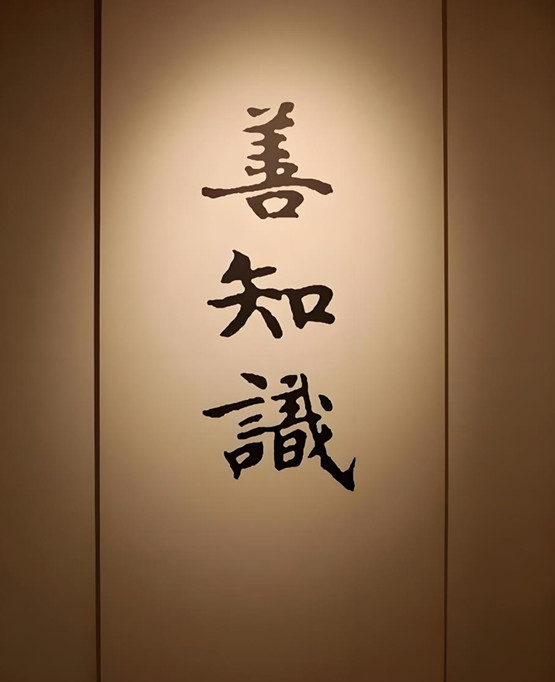 善知識